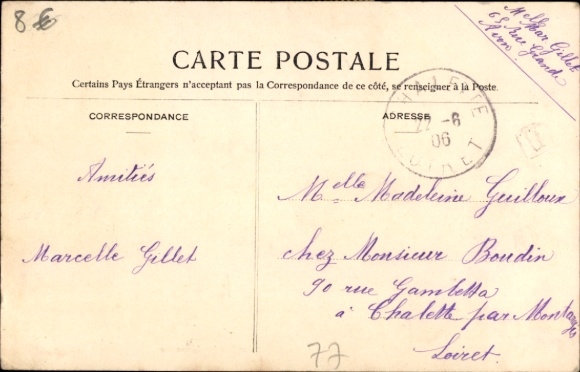 8€
Melle Mar Gillet
65 rue Grande
Avon
CARTE POSTALE
Certains Pays Étrangers n'acceptant pas la Correspondance de ce côté, se renseigner à la Poste.
CORRESPONDANCE
ADRESSE
22 -6
06
LOIRET
Amitiés
Marcelle Gillet
Melle Madeleine Guilloux
chez Monsieur Boudin
90 rue Gambetta
à Chalette par Montargis
Loiret.
77